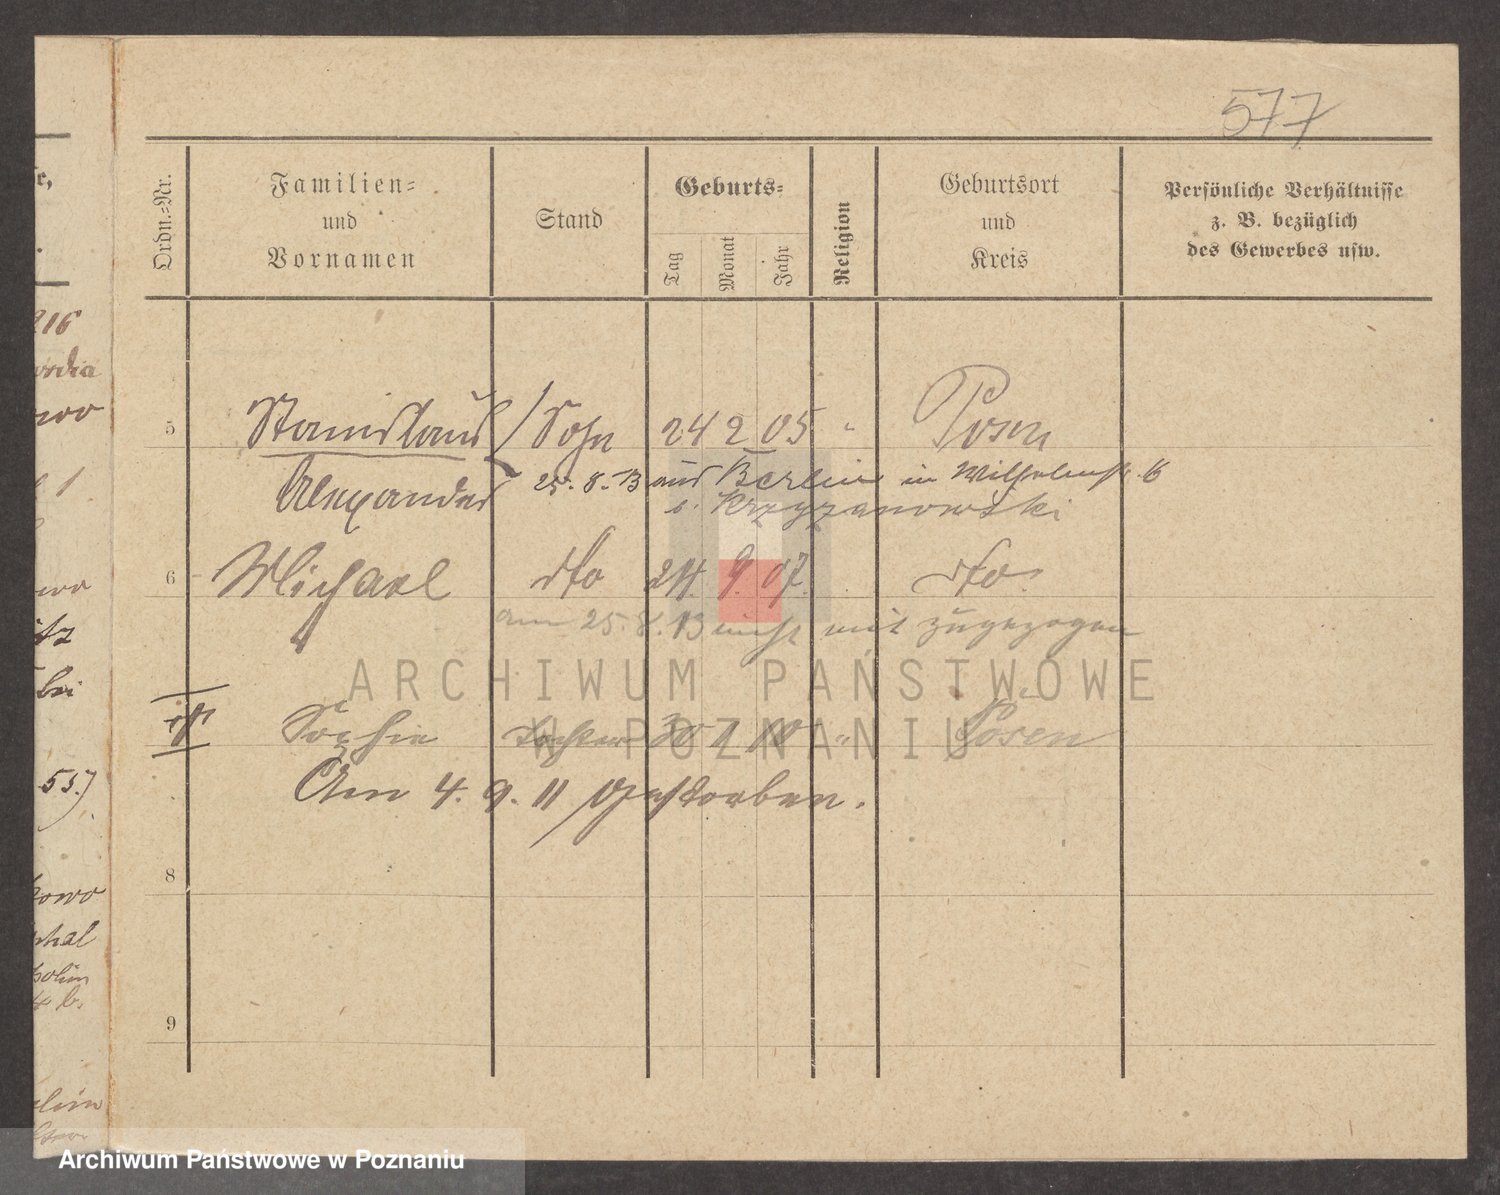 577
Ordn.-Nr.
Familien-
und
Vornamen
Stand
Geburts-
Tag
Monat
Jahr
Religion
Geburtsort
und
Kreis
Persönliche Verhältnisse
z. B. bezüglich
des Gewerbes usw.
216
5 Stanislaus Sohn 24 2 05 " Posen
Alexander
25. 8. 13 aus Berlin in Wilhelmstr. 16
b. Krzyzanowski
6 Michael dto 24. 9. 07. dto
am 25. 8. 13 nicht mit zugezogen
Sophie Tochter 30 1 10 " Posen
Am 4. 9. 11 gestorben.
8
9
ARCHIWUM PAŃSTWOWE
W POZNANIU
Archiwum Państwowe w Poznaniu